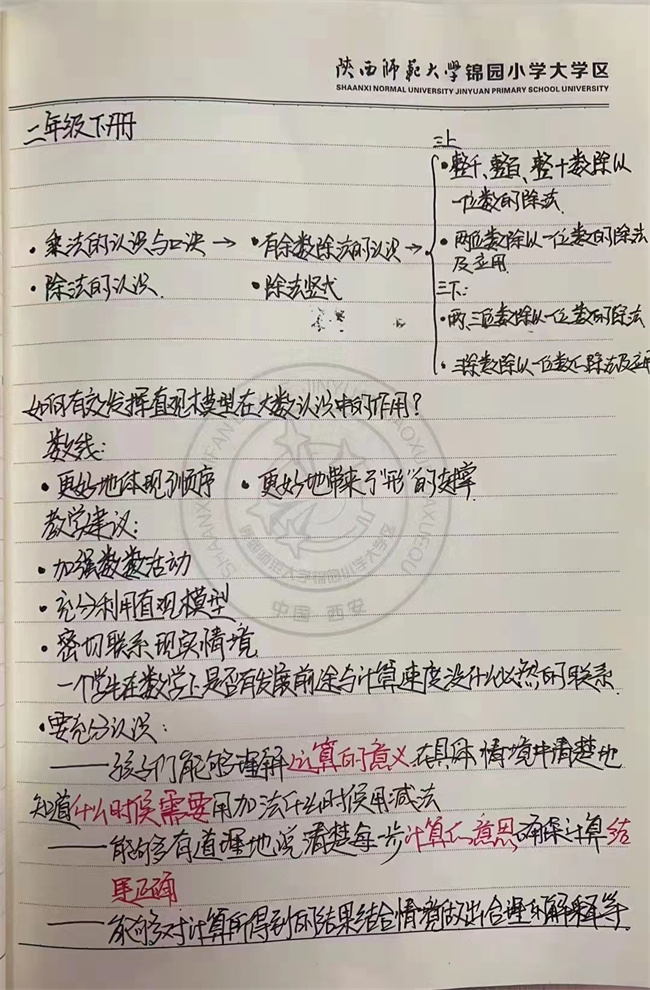 陕西师范大学锦园小学大学区
SHAANXI NORMAL UNIVERSITY JINYUAN PRIMARY SCHOOL UNIVERSITY
二年级下册
三上
·整千、整百、整十数除以
一位数的除法
·乘法的认识与口决→ ·有余数除法的认识→
·两位数除以一位数的除法
及应用
·除法的认识 ·除法竖式
三下:
·两、三位数除以一位数的除法
·三位数除以一位数的除法及应用
如何有效发挥直观模型在大数认识中的作用?
数线:
·更好地体现了顺序 ·更好地带来了"形"的支撑
教学建议:
·加强数数活动
·充分利用直观模型
·密切联系现实情境
中国 西安
一个学生在数学上是否有发展前途与计算速度没什么必然的联系.
·要充分认识:
——孩子们能够理解运算的意义在具体情境中清楚地
知道什么时候需要用加法什么时候用减法
——能够有道理地说清楚每一步计算的意思,确保计算结
果正确
——能够对计算所得到的结果结合情境做出合理的解释等.